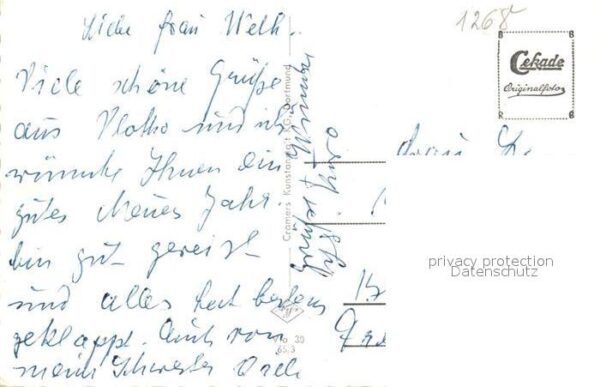 Liebe Frau Welk.
Viele schöne Grüße
aus Vlotho und ich
wünsche Ihnen ein
gutes Neues Jahr.
bin gut gereist
und alles hat bestens
geklappt. Auch von
mein Schwester
Grüße
Cramers Kunstanstalt KG, Dortmund
30
65/3
1268
Cekade
Originalfoto
Frau
privacy protection
Datenschutz